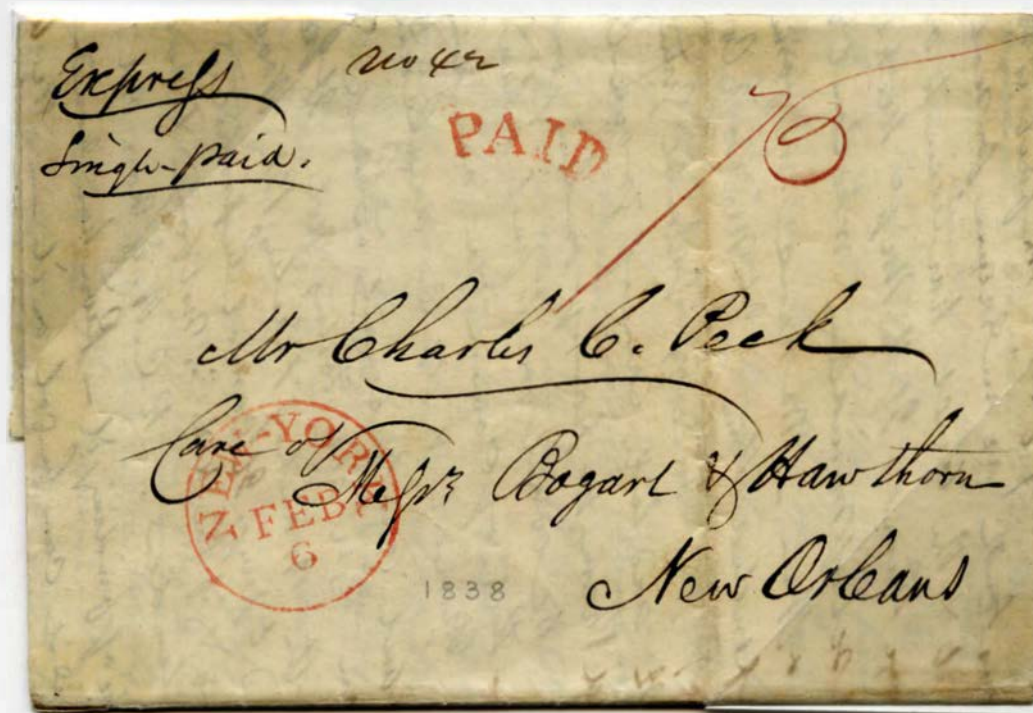 Express no 42
Single-paid.
PAID
75
Mr Charles C. Peck
Care of Messrs Bogart & Hawthorn
New Orleans
NEW-YORK
FEB
6
1838